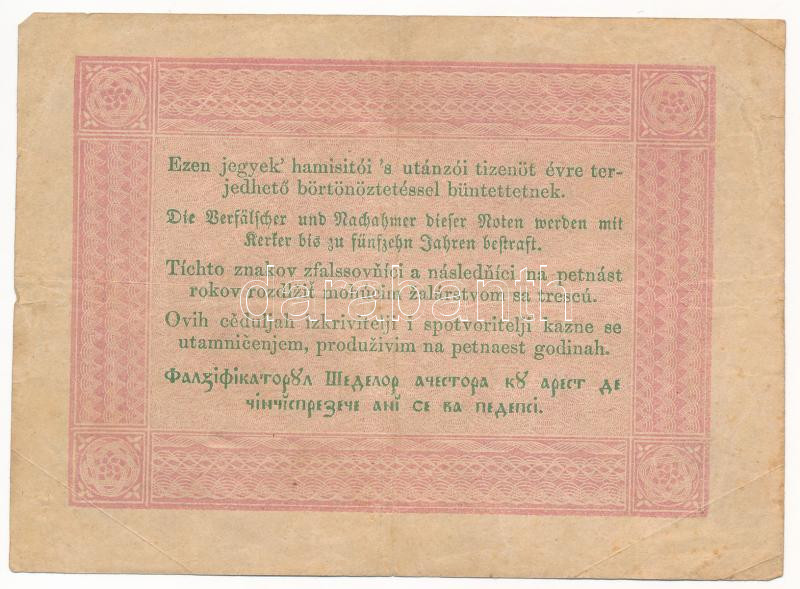 Ezen jegyek' hamisitói 's utánzói tizenöt évre ter-
jedhető börtönöztetéssel büntettetnek.
Die Verfälscher und Nachahmer dieser Noten werden mit
Kerker bis zu fünfzehn Jahren bestraft.
Tíchto znakov zfalssovňíci a následňíci na petnást
rokov rozdlžiť mohúcim žalárstvom sa trescú.
Ovih cěduljah izkrivitelji i spotvoritelji kazne se
utamničenjem, produživim na petnaest godinah.
Фалꙁіфікаторꙋл Шеделор ачестора кꙋ арест де
чінчіспреꙁече анї се ва педепсі.
darabanth